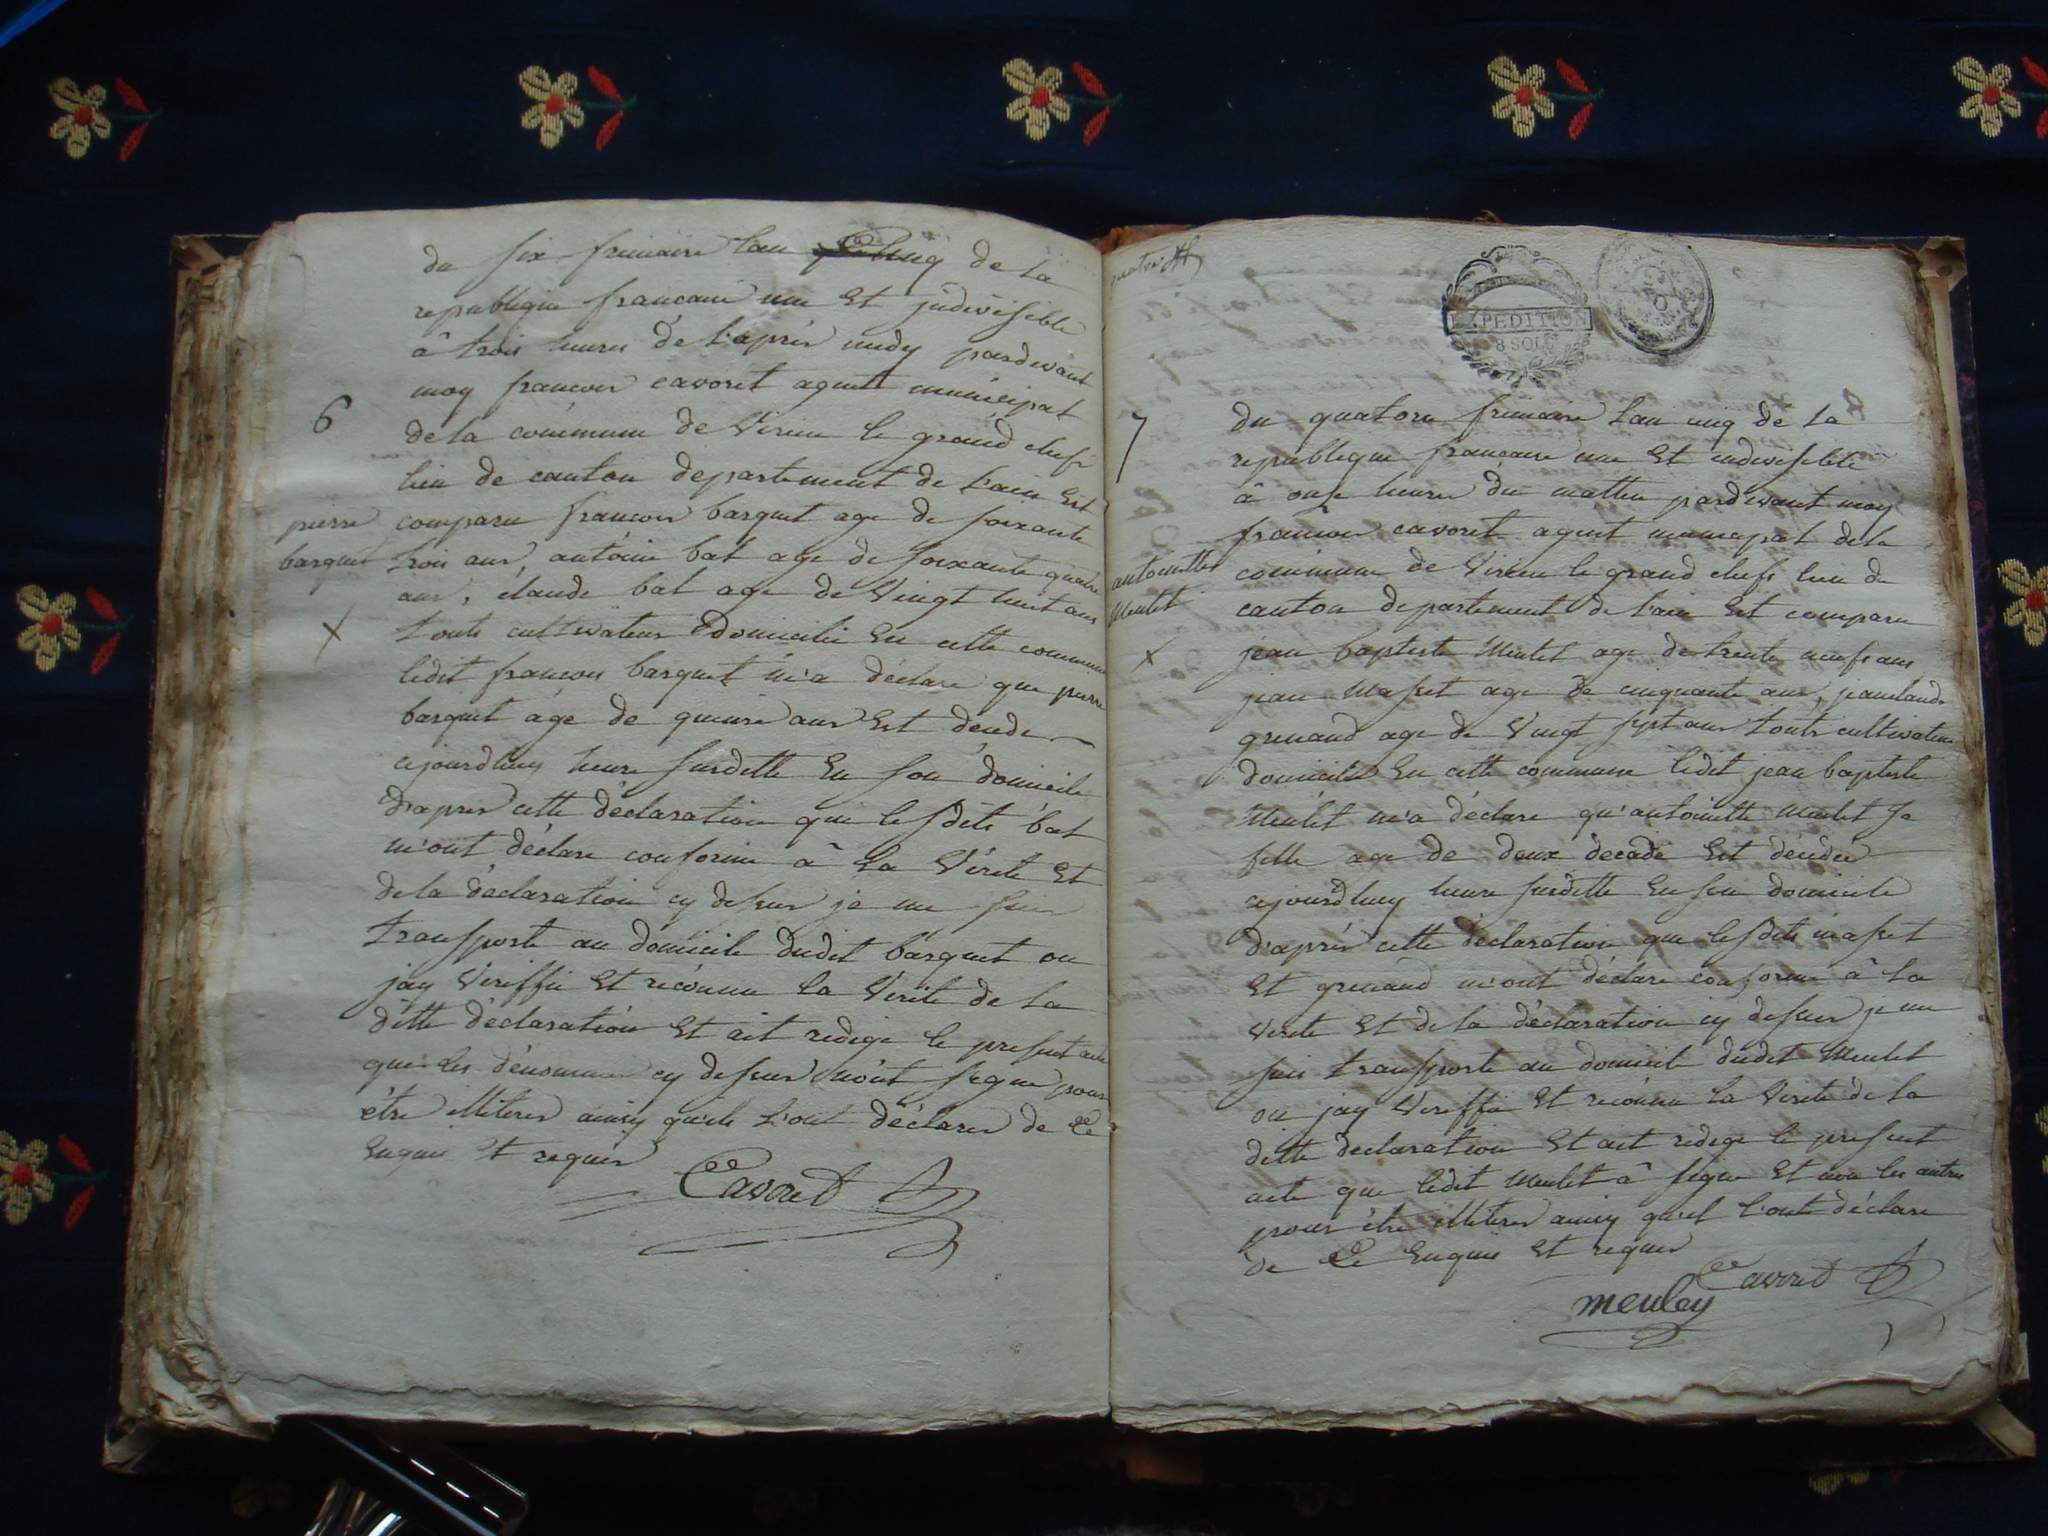 du six frimaire lan cinq de la
republique francaise une Et indivisible
â trois heures de l'aprés midy pardevant
moy francois cavoret agent municipal
6
de la commune de Virieu le grand chefs
lieu de canton departement de l'ain Est
pierre
comparu francois barquet age de soixante
barquet
trois ans, antoine bal age de soixante quatre
ans, claude bal age de Vingt huit ans
X
touts cultivateurs domicilié En cette commune
ledit francois barquet m'a déclare que pierre
barquet agé de quinze ans Est décédé
ajourdhuy heure susditte En son domicile
D'apres cette déclaration que lesdits bal
m'ont déclare conforme â la Vérité Et
de la déclaration cy dessus je me suis
transporte au domicile dudit barquet ou
jay Veriffié Et réconnu la Vérité de la
ditte déclaration Et ait redige le present acte
que les dénommes cy dessus n'ont signe pour
étre illiteres ainsy qu'ils l'ont déclares de ce
Enquis Et requis
Cavoret
quatre
EXPEDITION
8 SOLS
7
du quatorze frimaire lan cinq de la
republique francaise une Et indivisible
â onze heures du mattin pardevant moy
francois cavoret agent municipal de la
antoinette
commune de Virieu le grand chefs lieu de
Meulet
canton departement de l'ain Est comparu
x
jean baptiste Meulet age de trente neufs ans
jean Masset age de cinquante ans, jeanclaude
grenaud age de Vingt sept ans touts cultivateurs
domiciliés En cette commune ledit jean baptiste
Meulet m'a déclare qu'antoinette Meulet sa
fille age de deux decade Est décédée
ajourdhuy heure susditte En son domicile
D'aprés cette déclaration que lesdits masset
Et grenaud m'ont déclare conforme â la
Verite Et de la déclaration cy dessus je me
suis transporte au domicile dudit Meulet
ou jay Veriffié Et réconnu la Verité de la
ditte declaration Et ait redige le present
acte que ledit Meulet â signe Et non les autres
pour étre illiteres ainsy qu'il l'ont déclare
de Ce Enquis Et requis
Cavoret
meuley